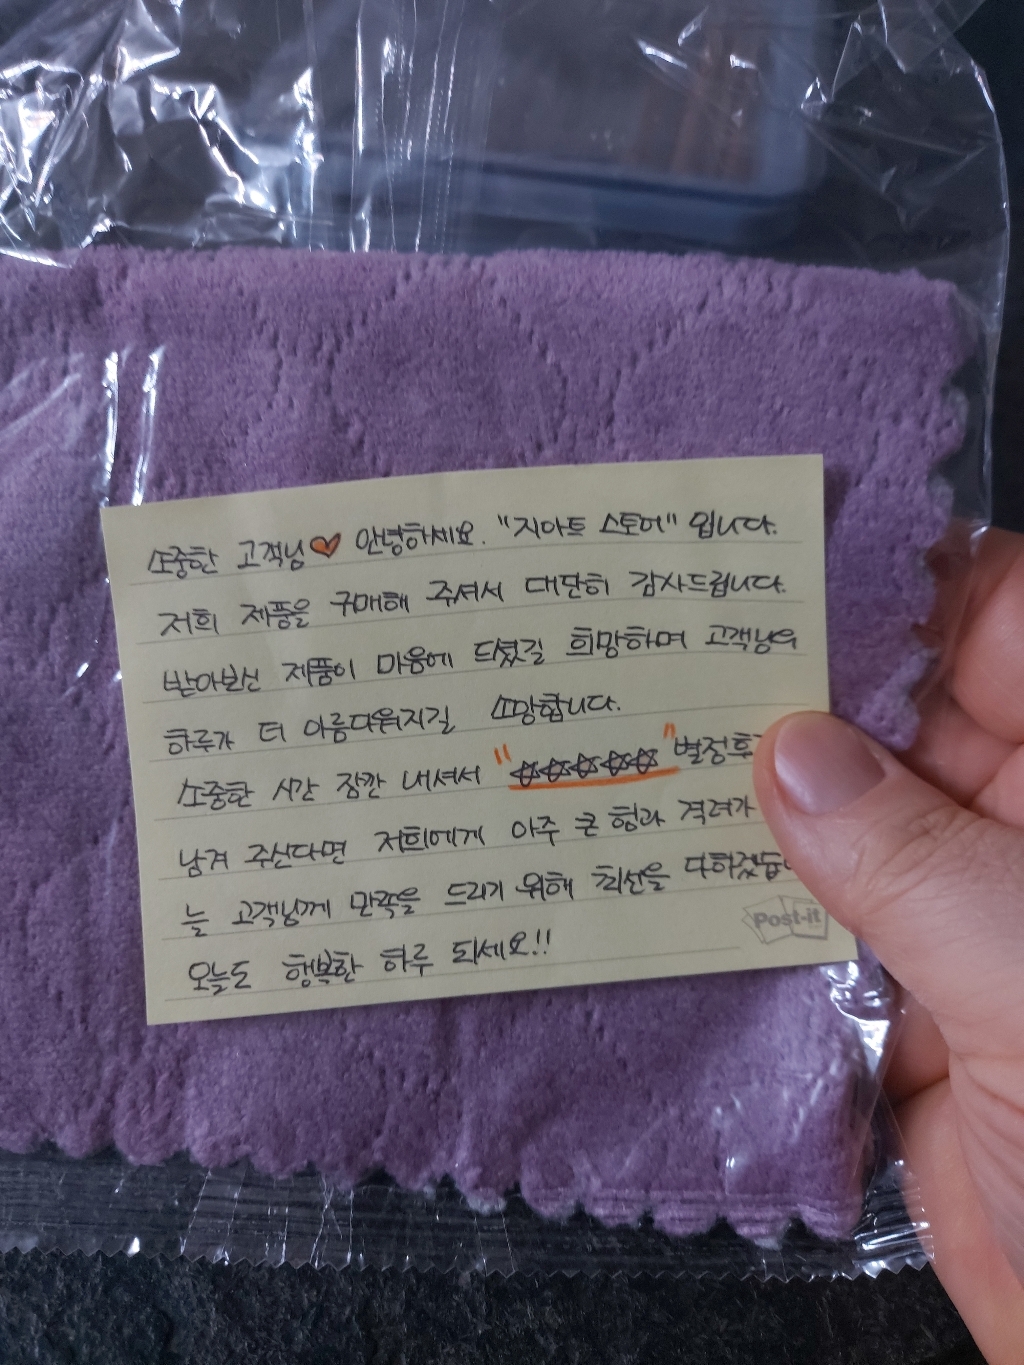 소중한 고객님♥ 안녕하세요. "지아트 스토어" 입니다.
저희 제품을 구매해 주셔서 대단히 감사드립니다.
받아보신 제품이 마음에 드셨길 희망하며 고객님의
하루가 더 아름다워지길 소망합니다.
소중한 시간 잠깐 내셔서 "☆☆☆☆☆" 별점후
남겨 주신다면 저희에게 아주 큰 힘과 격려가
늘 고객님께 만족을 드리기 위해 최선을 다하겠습
오늘도 행복한 하루 되세요!!
Post-it